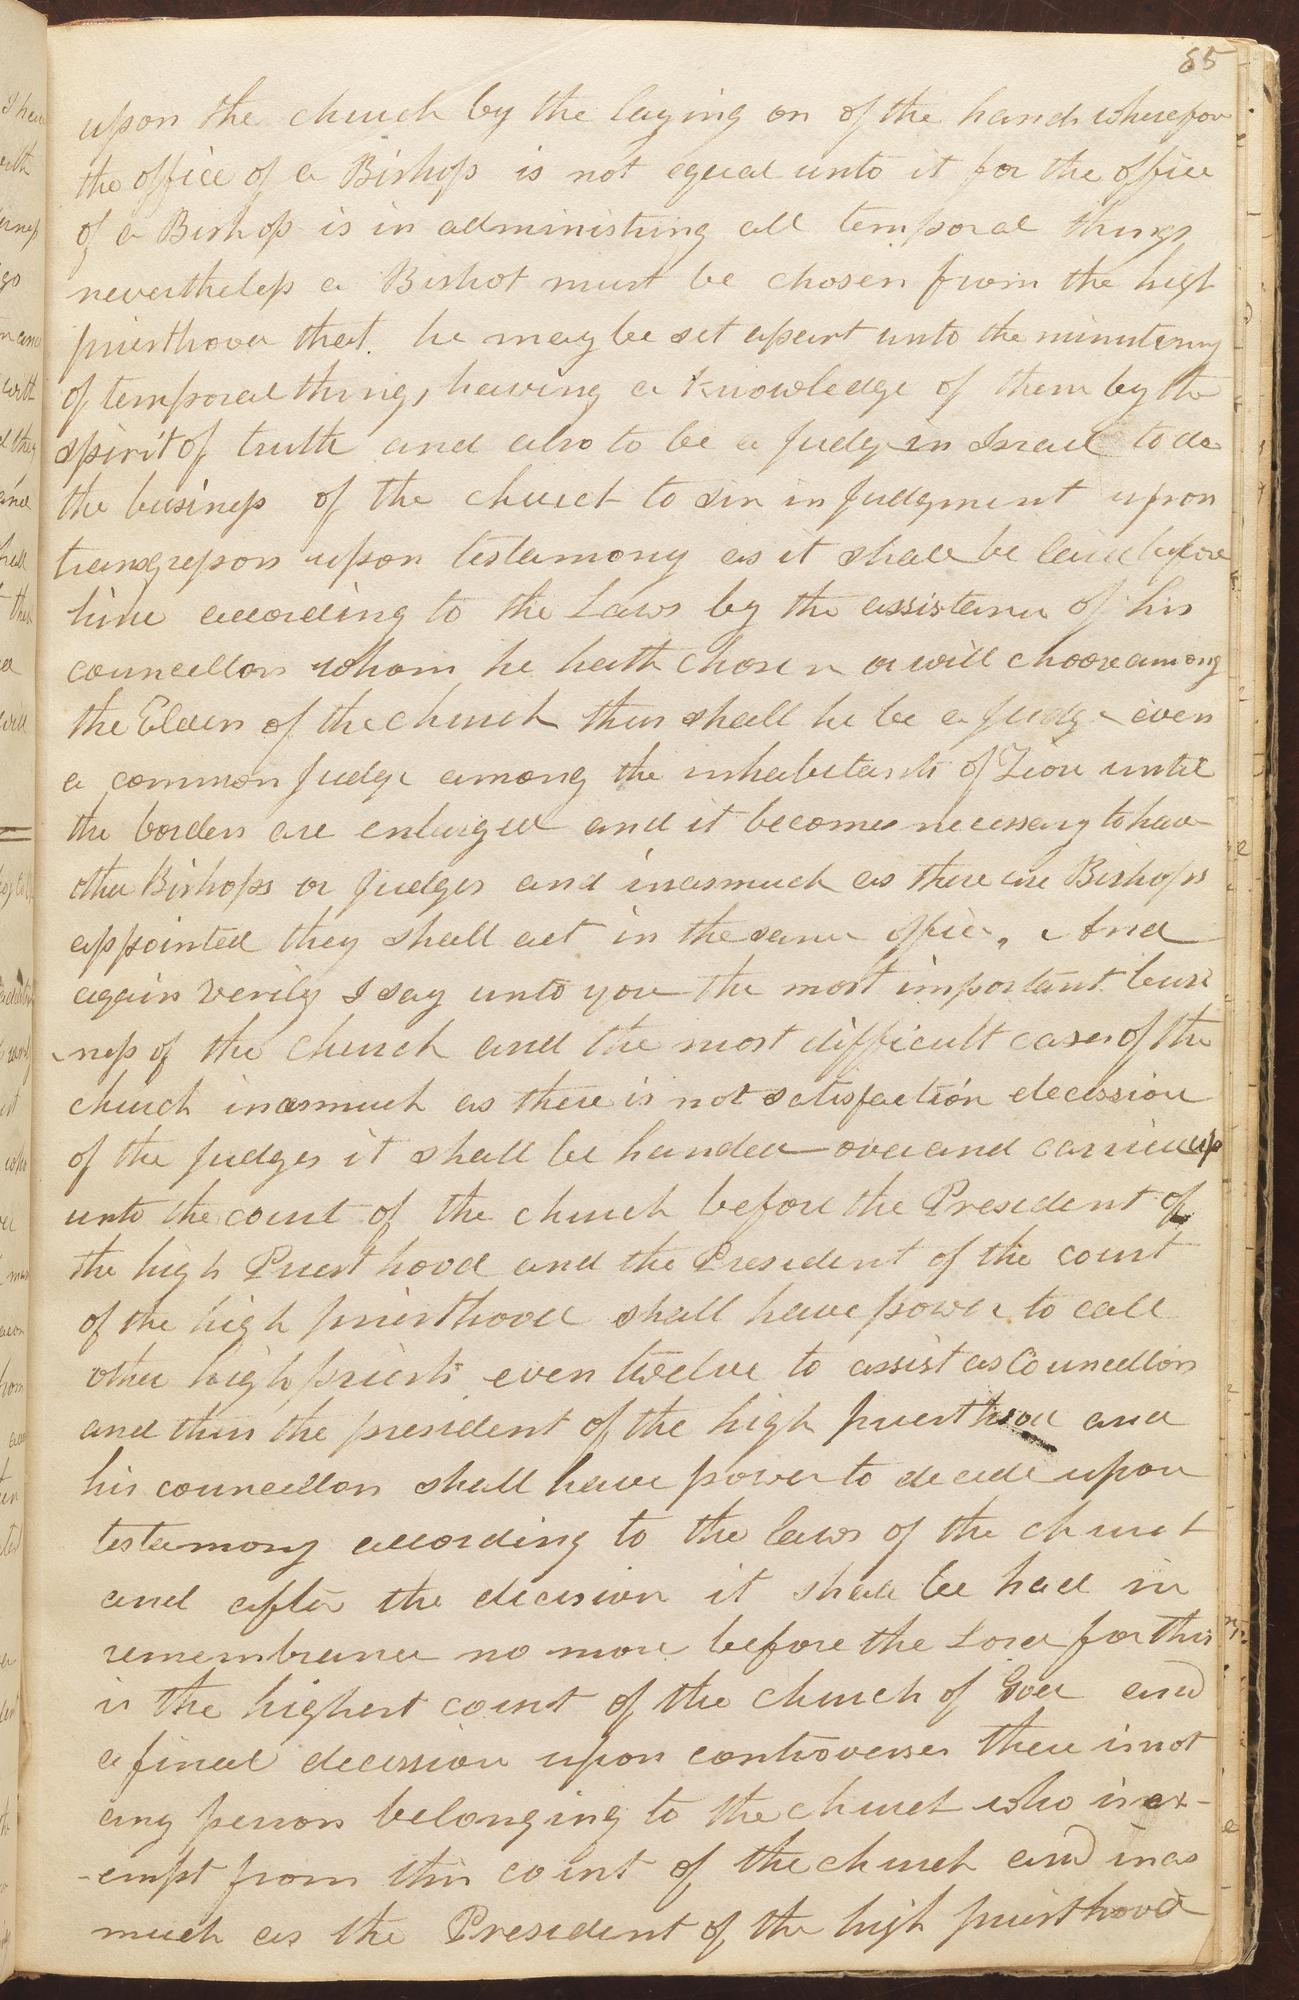 85
upon the church by the laying on of the hands wherefore
the office of a Bishop is not equal unto it for the office
of a Bishop is in administring all temporal things
nevertheless a Bishot must be chosen from the high
priesthood that he may be set apart unto the minutering
of temporal things, having a knowledge of them by the
spirit of truth and also to be a Judge in Israel to do
the business of the church to sin in Judgment upon
transgressors upon testamony as it shall be laid before
him according to the Laws by the assistance of his
councellors whom he hath chosen or will choose among
the Elders of the church thus shall he be a Judge even
a common Judge among the inhabitants of Zion until
the borders are enlarged and it becomes necessary to have
other Bishops or Judges and inasmuch as there are Bishops
appointed they shall act in the same office, And
again verily I say unto you the most important busi
-ness of the church and the most difficult cases of the
church inasmuch as there is not satisfaction decession
of the Judges it shall be handed over and carried up
unto the court of the church before the President of
the high Priest hood and the President of the court
of the high priesthood shall have power to call
other high priests even twelve to assist as Councellors
and thus the president of the high priesthood and
his councellors shall have power to decide upon
testamony according to the laws of the church
and after the decision it shall be had in
remembrance no more before the Lord for this
is the highest court of the church of God and
a final decession upon controverses there is not
any person belonging to the church who is ex-
-empt from this court of the church and inas
much as the President of the high priesthood